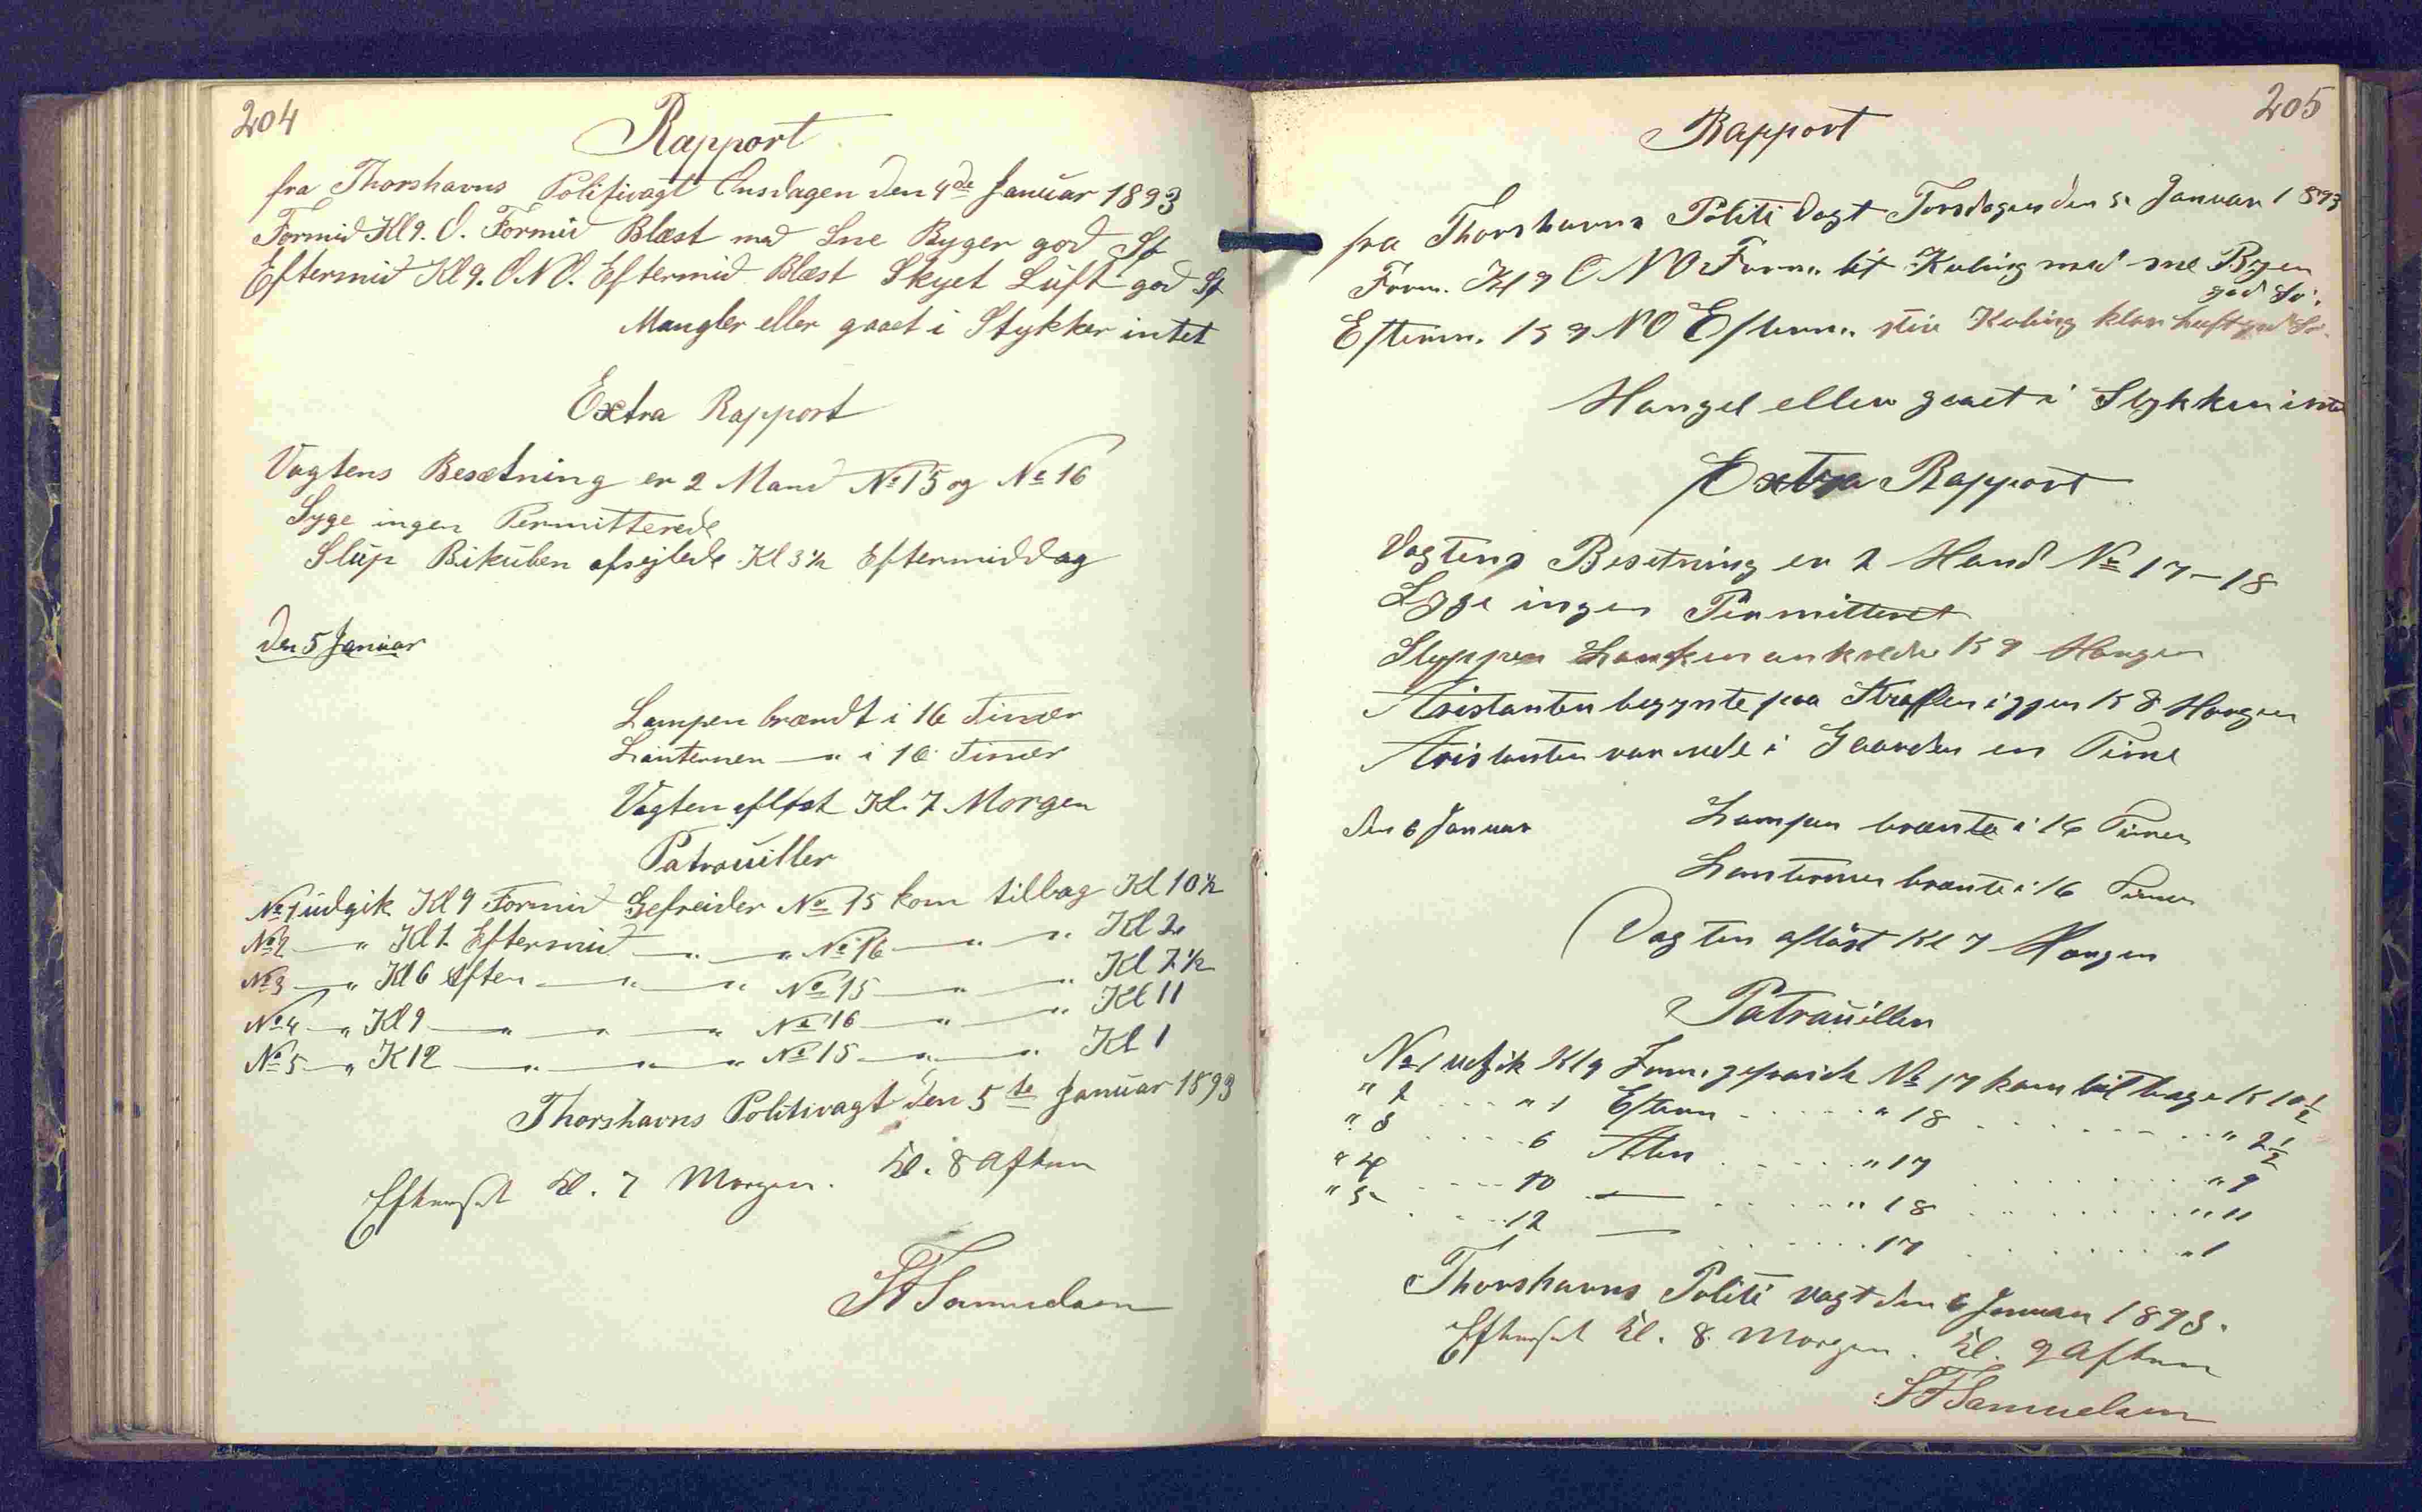 204
Rapport
fra Thorshavns Politivagt Onsdagen den 4de Januar 1893
Formid Kl 9. O. Formid Blæst med Sne Byger god Sø
Eftermid Kl 9. O.N.O. Eftermid Blæst Skyet Luft god Sø
Mangler eller gaaet i Stykker intet
Extra Rapport
Vagtens Besætning er 2 Mand No 15 og No 16
Syge ingen Permitterede
Slup Bikuben afsejlede Kl 3½ Eftermiddag
den 5 Januar
Lampen brændt i 16 Timer
Lanternen — " i 16 Timer
Vagten afløst Kl. 7 Morgen
Patrouiller
No 1 udgik Kl 9 Formid Gefreider No 15 kom tilbag Kl 10½
No 2 — " Kl 1 Eftermid — " — " No 16 — " — " Kl 2
No 3 — " Kl 6 Aften — " — " No 15 — " — " Kl 7½
No 4 — " Kl 9 — " — " — " No 16 — " — " Kl 11
No 5 — " K 12 — " — " — " No 15 — " — " Kl 1
Thorshavns Politivagt den 5te Januar 1893
Efterseet Kl. 7 Morgen. Kl. 8 Aften
Samuelsen
205
Rapport
fra Thorshavns Politi Vagt Torsdagen den 5. Januar 1893
Form. Kl 9 O N O Form. let Kuling med sne Byer
god Sø.
Efterm. K 9 NO Efterm. stiv Kuling klar luft god Sø.
Mangel eller gaaet i Stykker
Extra Rapport
Vagtens Besetning er 2 Mand No 17–18
Syge ingen Permitteret
Sluppen ankrede K 9 Morgen
Aristanten begynte paa Straffen iggen K 8 Morgen
Aristanten var nede i Gaarden en Time
den 6 Januar
Lampen brænte i 16 Timer
Lanternen brænte i 16 Timer
Vagten afløst Kl 7 Morgen
Patrouillen
No 1 udgik Kl 9 Form. gefraide No 17 kom tilbage K 10½
" 2 . . . . " 1 Efterm . . . . . " 18 . . . . . . . " 2½
" 3 . . . . . 6 Aften . . . . . " 17 . . . . . . . " 9
" 4 . . . . 10 — . . . . " 18 . . . . . . . " 11
" 5 . . . . 12 — . . . . . 17 . . . . . . . " 1
Thorshavns Politi vagt den 6 Januar 1893.
Efterseet Kl. 8 Morgen. Kl. 9 Aften
Samuelsen